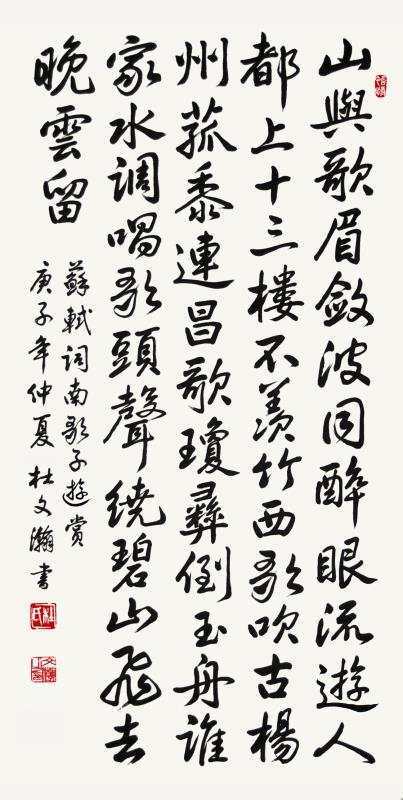 山與歌眉斂波同醉眼流遊人
都上十三樓不羨竹西歌吹古楊
州菰黍連昌歌瓊彝倒玉舟誰
家水調唱歌頭聲繞碧山飛去
晚雲留
蘇軾詞南歌子遊賞
庚子年仲夏杜文瀚書
杜氏